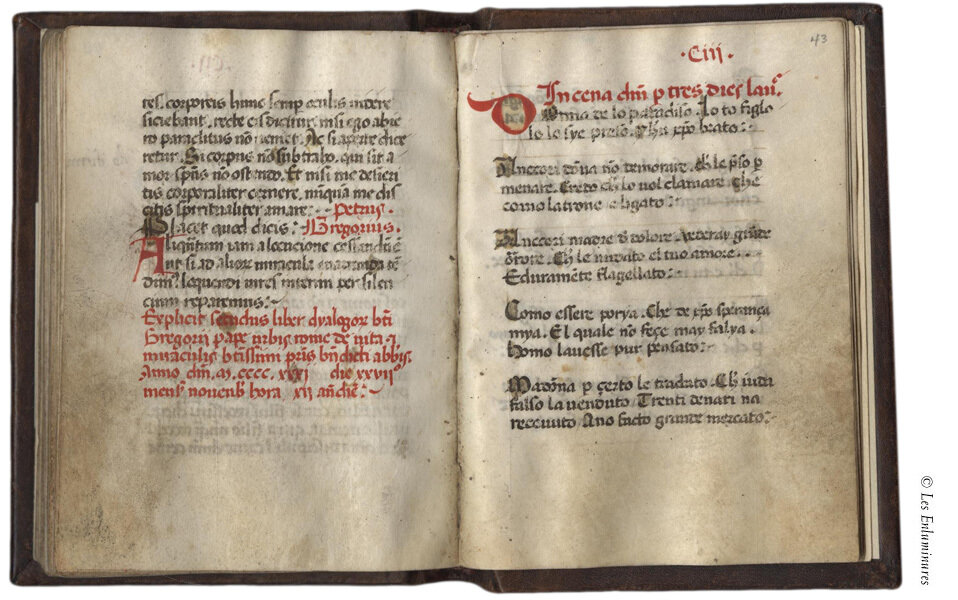 tes. corporeis hunc semp oculis videre
sitiebant. recte eis dicitur. nisi ego abie
ro paraclitus nō veniet. Ac si aperte dice
retur. Si corpus nō subtraho. qui sit a
mor spūs nō ostendo. Et nisi me desieri
tis corporaliter cernere. nūquā me dis
citis spiritualiter amare. Petrus.
Placet quod dicis. Gregorius.
Aliqūtum iam a locucione cessandū ē
Aut si ad alior miracula tē
dim⁹ loquendi vires interim per silen
cium reparemus.
Explicit secūdus liber dyalogor bti
Gregorii pape urbis rome de vita ⁊
miraculis btissimi pris bndicti abbis.
Anno dm̄. M. cccc. xxxi die xxvii⁰
mens novenb hora xii
43
.Ciii.
In cena dn̄i p tres dies lau⁹.
Donna de lo paradiso. Lo to figlo
lo lo sye preso. Ihu xp̄o beato.
Ancori dōna nō demorare. Ch le
menare. Creto ch lo vol clamare. Che
como latrone e ligato.
Ancori madre d dolore. Averay grāde
Ch le nudato el tuo amore.
E duramēte flagellato.
Como essere porya. Che de xp̄o sperança
mya. El quale no feçe may falya.
Homo lavesse pur pensato.
Madōna p çerto le tradato. Ch iuda
falso la venduto. Trenti denari na
reccuuto Ano facto grande mercato.
© Les Enluminures